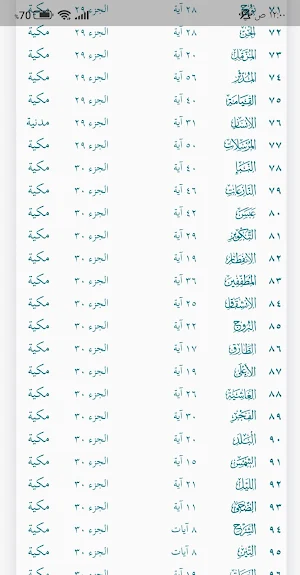 ١٢:٠٠ ص
٧٠%
٧١ نوح ٢٨ آية الجزء ٢٩ مكية
٧٢ الجن ٢٨ آية الجزء ٢٩ مكية
٧٣ المزمل ٢٠ آية الجزء ٢٩ مكية
٧٤ المدثر ٥٦ آية الجزء ٢٩ مكية
٧٥ القيامة ٤٠ آية الجزء ٢٩ مكية
٧٦ الإنسان ٣١ آية الجزء ٢٩ مدنية
٧٧ المرسلات ٥٠ آية الجزء ٢٩ مكية
٧٨ النبإ ٤٠ آية الجزء ٣٠ مكية
٧٩ النازعات ٤٦ آية الجزء ٣٠ مكية
٨٠ عبس ٤٢ آية الجزء ٣٠ مكية
٨١ التكوير ٢٩ آية الجزء ٣٠ مكية
٨٢ الانفطار ١٩ آية الجزء ٣٠ مكية
٨٣ المطففين ٣٦ آية الجزء ٣٠ مكية
٨٤ الانشقاق ٢٥ آية الجزء ٣٠ مكية
٨٥ البروج ٢٢ آية الجزء ٣٠ مكية
٨٦ الطارق ١٧ آية الجزء ٣٠ مكية
٨٧ الأعلى ١٩ آية الجزء ٣٠ مكية
٨٨ الغاشية ٢٦ آية الجزء ٣٠ مكية
٨٩ الفجر ٣٠ آية الجزء ٣٠ مكية
٩٠ البلد ٢٠ آية الجزء ٣٠ مكية
٩١ الشمس ١٥ آية الجزء ٣٠ مكية
٩٢ الليل ٢١ آية الجزء ٣٠ مكية
٩٣ الضحى ١١ آية الجزء ٣٠ مكية
٩٤ الشرح ٨ آيات الجزء ٣٠ مكية
٩٥ التين ٨ آيات الجزء ٣٠ مكية